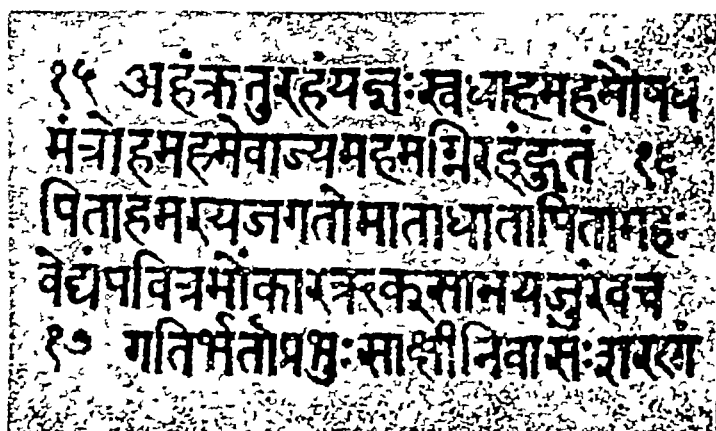 १५ अहंक्रतुरहंयज्ञःस्वधाहमहमौषधं
मंत्रोहमहमेवाज्यमहमग्निरहंहुतं १६
पिताहमस्यजगतोमाताधातापितामहः
वेद्यंपवित्रमोंकारऋक्सामयजुरेवच
१७ गतिर्भर्ताप्रभुःसाक्षीनिवासःशरणं